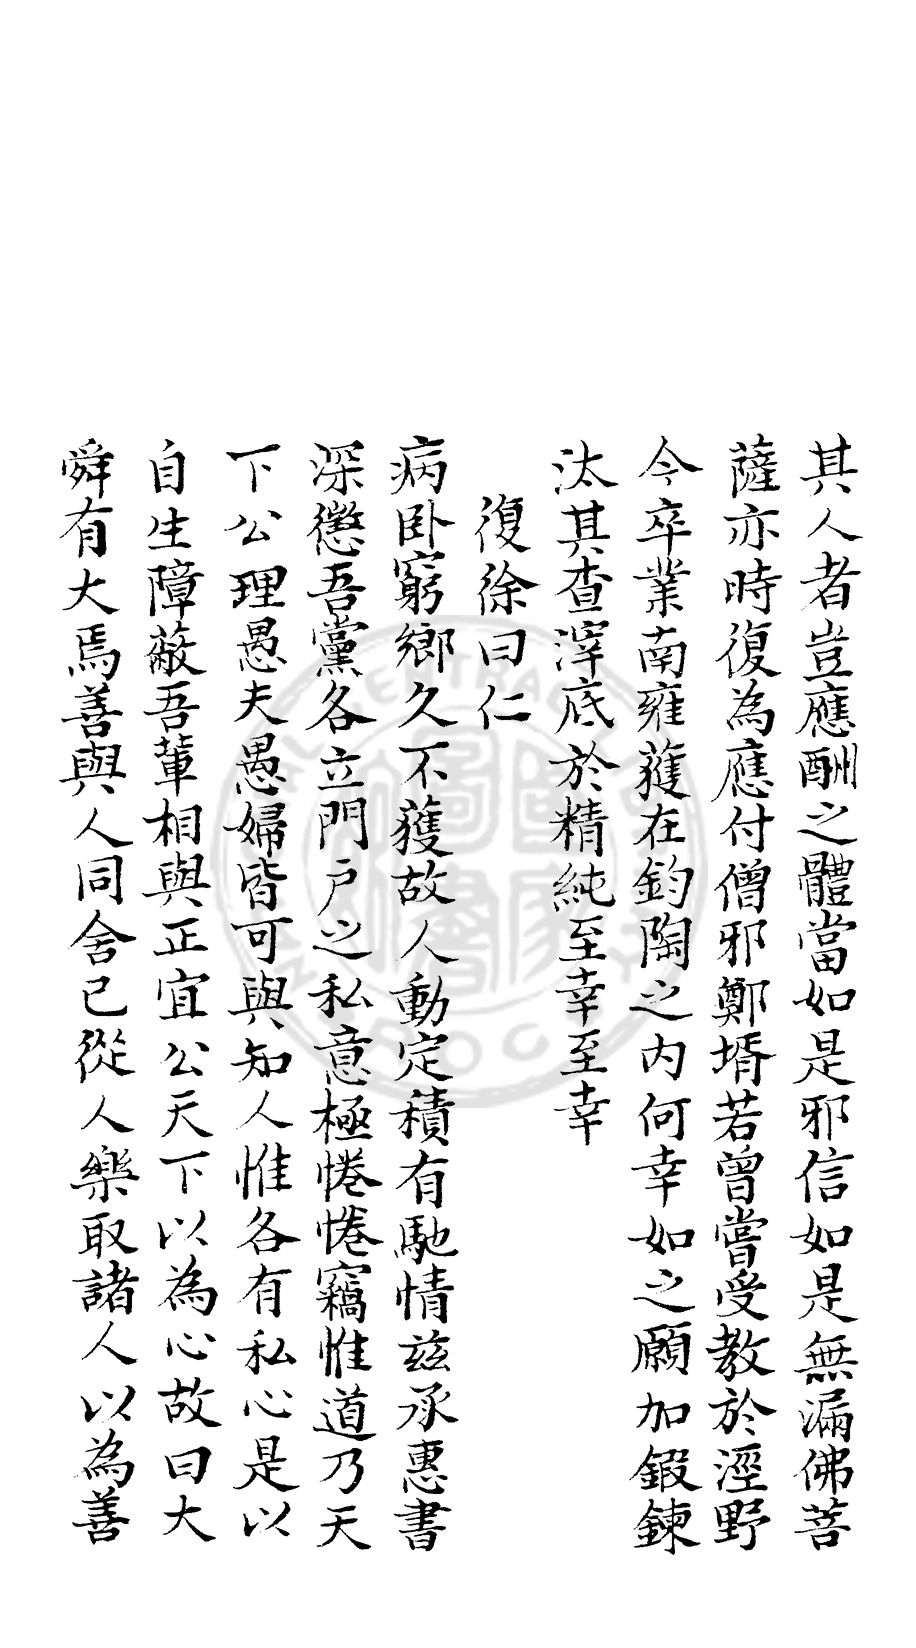 其人者豈應酬之體當如是邪信如是無漏佛菩
薩亦時復為應付僧邪鄭壻若曾嘗受教於涇野
今卒業南雍獲在鈞陶之內何幸如之願加鍛鍊
汰其查滓底於精純至幸至幸
復徐曰仁
病卧窮鄉久不獲故人動定積有馳情兹承惠書
深懲吾黨各立門戶之私意極惓惓竊惟道乃天
下公理愚夫愚婦皆可與知人惟各有私心是以
自生障蔽吾輩相與正宜公天下以為心故曰大
舜有大焉善與人同舍己從人樂取諸人以為善